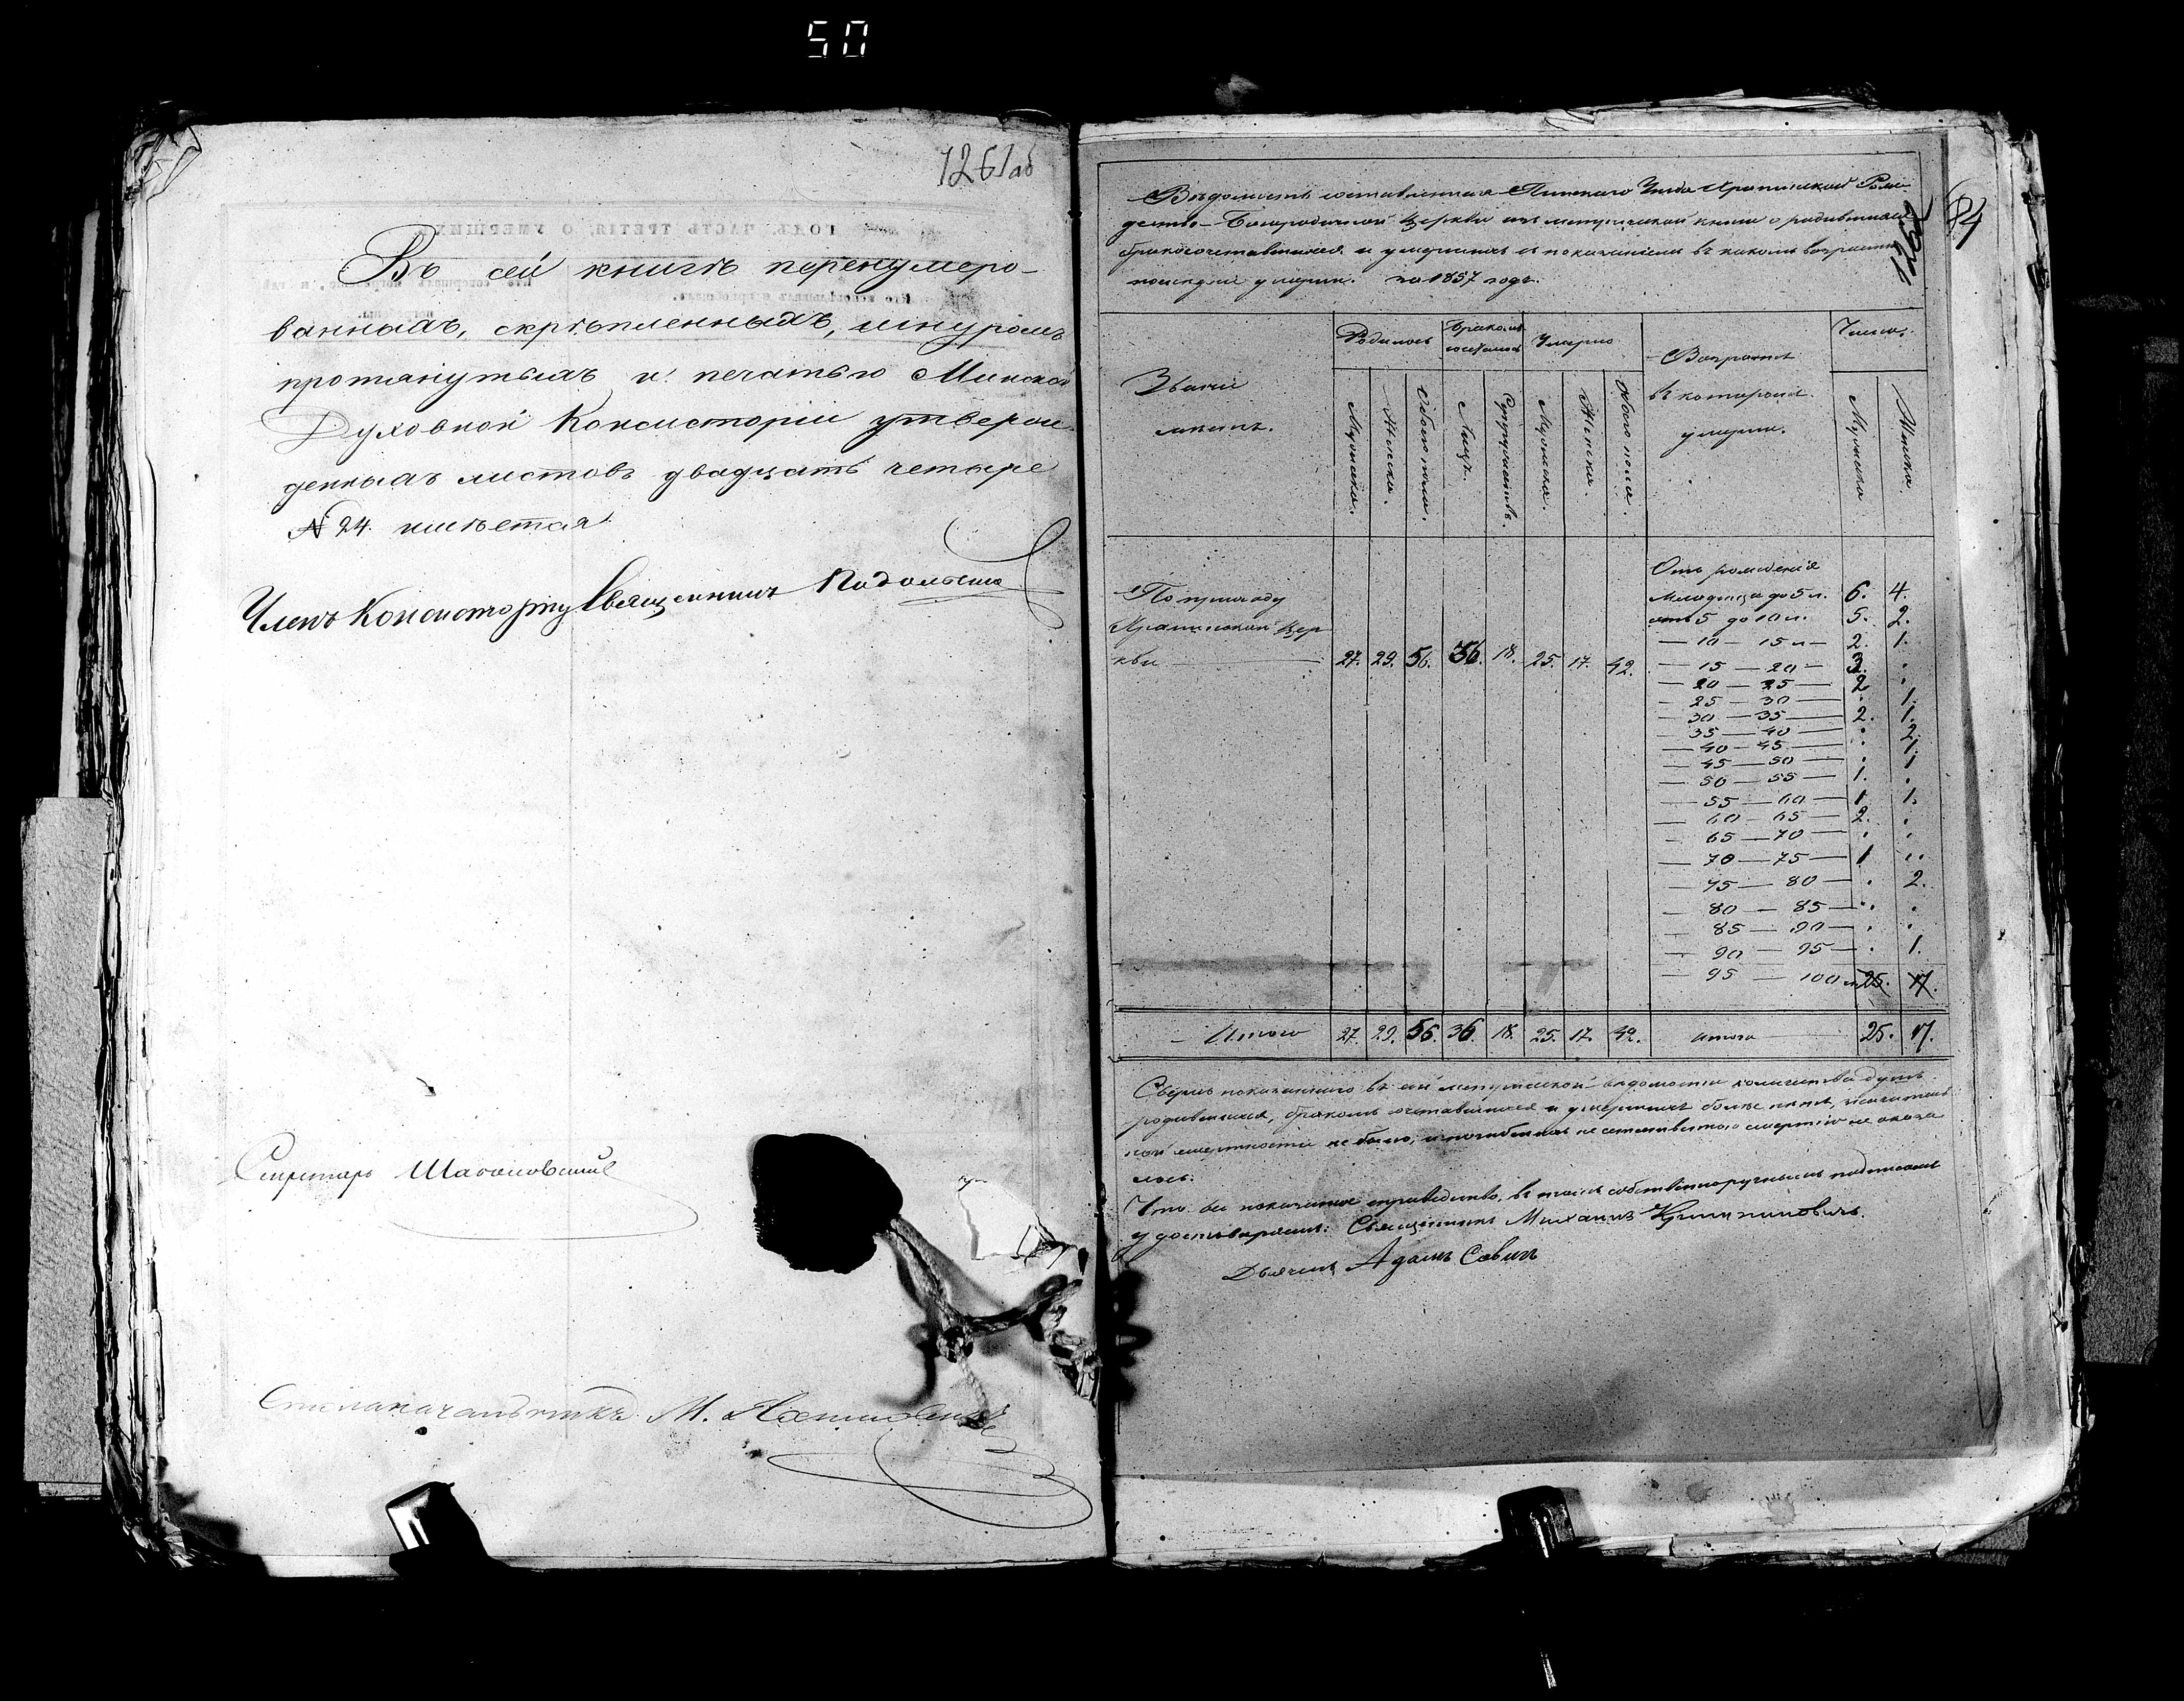 50
1261об
Въ сей книгѣ перенумеро-
ванныхъ, скрѣпленныхъ, шнуромъ
протянутыхъ и печатью Минской
Духовной Консисторіи утверж-
денныхъ листовъ двадцать четыре
№ 24. имѣется
Членъ Консисторіи Священникъ Подольскій
Секретарь
Столоначальникъ М.
84
1262
Вѣдомость составленная Пинскаго Уѣзда Рож-
дество-Богородичной Церкви изъ метрической книги о родившихся
бракосочетавшихся и умершихъ съ показаніемъ въ какомъ возрастѣ
послѣдніе умерли. за 1857 годъ.
Званіе
Родилось
Бракомъ
сочеталось
Умерло
Возрастъ
въ которомъ
умерли.
Число.
Мужеска.
Женска.
Обоего пола.
Лицъ.
Супружествъ.
Мужеска.
Женска.
Обоего пола.
Мужеска
Женска.
По приходу
Цер
кви 27. 29. 56. 36. 18. 25. 17. 42.
Отъ рожденія
Младенца до 5 л. 6. 4.
отъ 5 до 10 л. 5. 2.
— 10 — 15 л — 2. 1.
— 15 — 20 — 3. .
— 20 — 25 — 2 .
— 25 — 30 — . 1.
— 30 — 35 — 2. 1.
— 35 — 40 — . 2.
— 40 — 45 — . 1.
— 45 — 50 — . 1
— 50 — 55 — 1. .
— 55 — 60 — 1 1.
— 60 — 65 — 2. .
— 65 — 70 — . .
— 70 — 75 — 1 .
— 75 — 80 — . 2.
— 80 — 85 — . .
— 85 — 90 — . .
— 90 — 95 — . 1.
— 95 — 100 25. 17.
Итого 27. 29. 56. 36. 18. 25. 17. 42. итого 25. 17.
Сверхъ показаннаго въ сей метрической вѣдомости количества душъ
родившихся, бракомъ сочетавшихся и умершихъ болѣе нѣтъ,
ной смертности не было, и погибшихъ не естественною смертію не оказа
лось.
Что все показанное справедливо, въ томъ собственноручнымъ подписомъ
удостовѣряемъ: Священникъ Михаилъ
Дьячекъ Адамъ Савич